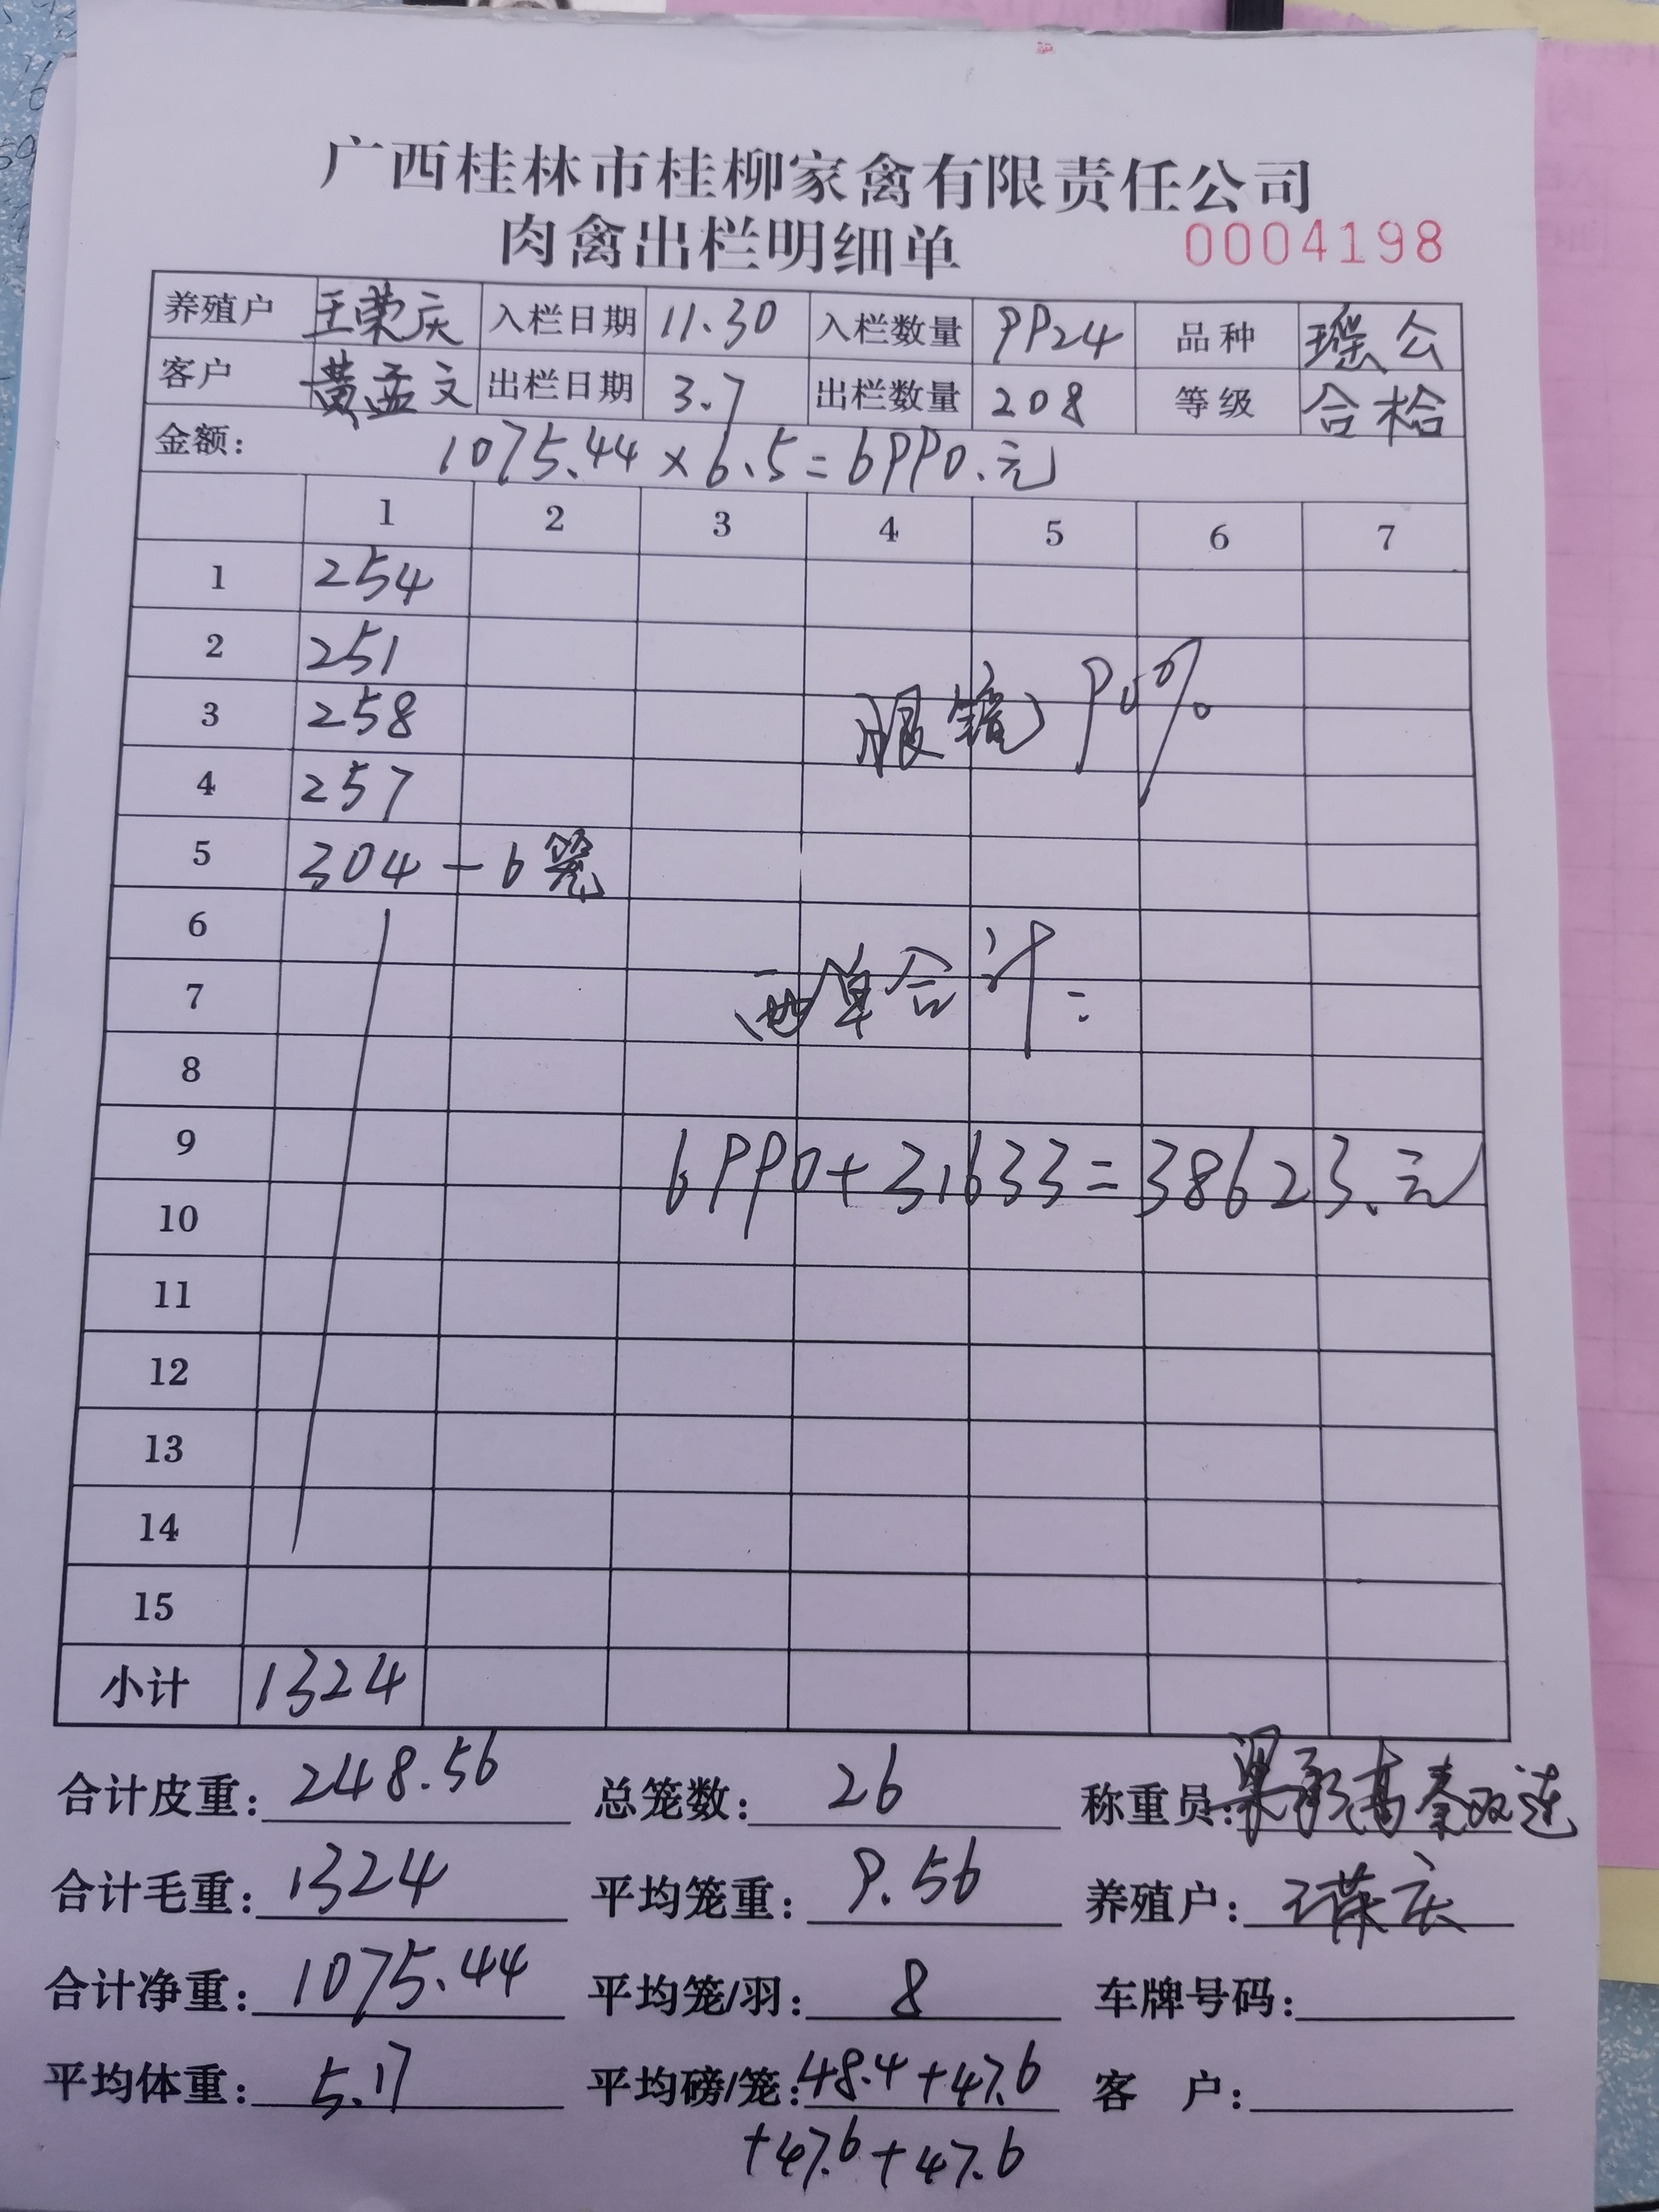 广西桂林市桂柳家禽有限责任公司
肉禽出栏明细单 0004198
养殖户 王荣庆 入栏日期 11.30 入栏数量 9924 品种 瑶公
客户 黄孟文 出栏日期 3.7 出栏数量 208 等级 合格
金额: 1075.44×6.5=6990.元
1 2 3 4 5 6 7
1 254
2 251
3 258
眼镜 90%
4 257
5 304-6笼
6
两单合计:
7
8
9
6990+31633=38623.元
10
11
12
13
14
15
小计 1324
合计皮重: 248.56 总笼数: 26 称重员: 秦双连
合计毛重: 1324 平均笼重: 9.56 养殖户: 王荣庆
合计净重: 1075.44 平均笼/羽: 8 车牌号码:
平均体重: 5.17 平均磅/笼: 48.4+47.6 客 户:
+47.6+47.6